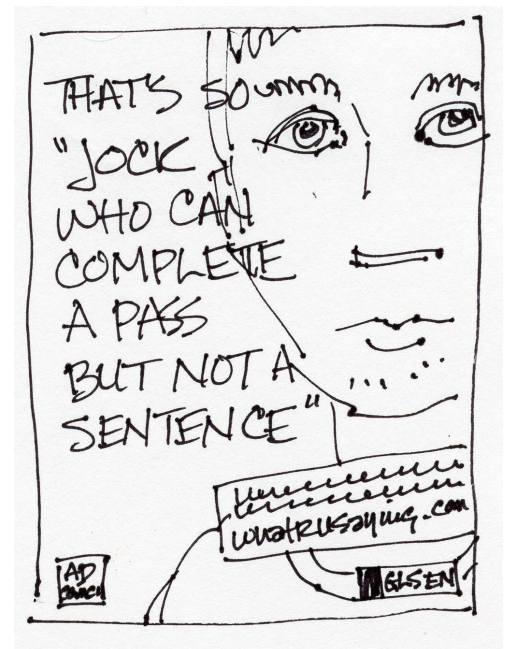 THAT'S SO
"JOCK
WHO CAN
COMPLETE
A PASS
BUT NOT A
SENTENCE"
whatrusaying.com
AD
COUNCIL
GLSEN